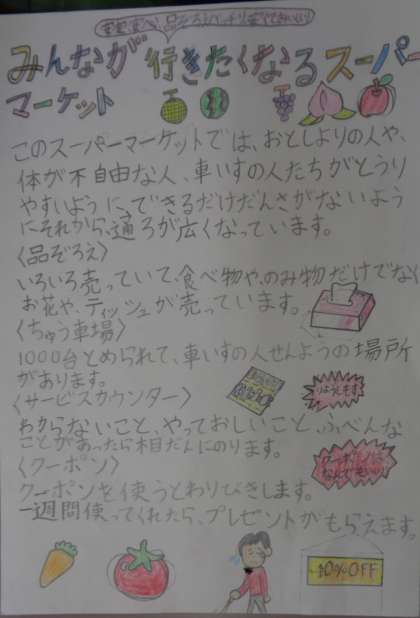 みんなが行きたくなるスーパー
マーケット
このスーパーマーケットでは、おとしよりの人や、
体が不自由な人、車いすの人たちがとうり
やすいように、できるだけだんさがないよう
にそれから、通ろが広くなっています。
〈品ぞろえ〉
いろいろ売っていて、食べ物や、のみ物だけでなく
お花や、ティッシュが売っています。
〈ちゅう車場〉
1000台とめられて、車いすの人せんようの場所
があります。
〈サービスカウンター〉
わからないこと、やっておしいこと、ふべんな
ことがあったら木目だんにのります。
〈クーポン〉
クーポンを使うとわりびきします。
一週間使ってくれたら、プレゼントがもらえます。
10%OFF